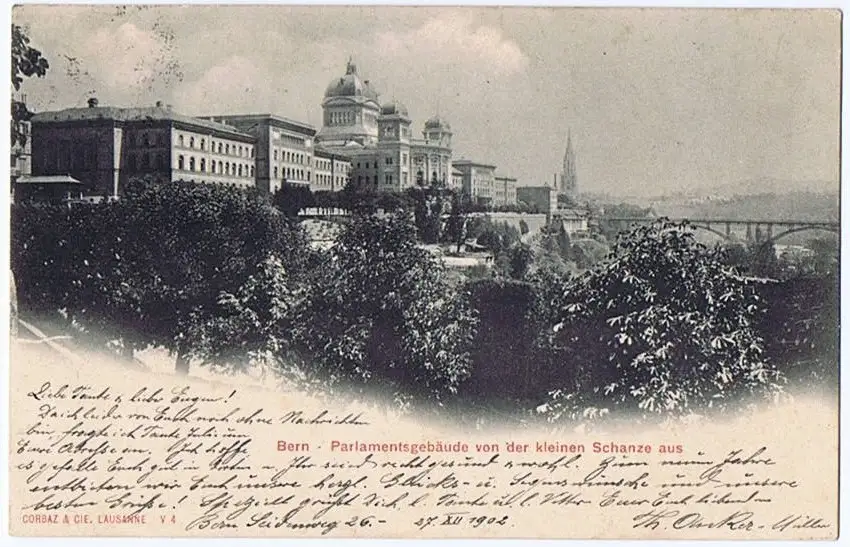 Liebe Tante & liebe Eugen!
Da ich leider von Euch noch ohne Nachrichten
bin, fragte ich Tante Julie um
Eure Adresse an. Ich hoffe
Bern - Parlamentsgebäude von der kleinen Schanze aus
es gefalle Euch gut in & Ihr seid recht gesund & wohl. Zum neuen Jahre
entbieten wir Euch unsere herzl. Glücks- u. Segenswünsche und unsere
besten Grüße! Speziell grüßt Dich, l. Tante & l. Vetter Euer Euch liebender
CORBAZ & CIE. LAUSANNE V 4
Bern Seidenweg 26.- 27. XII 1902.
Th. Anker-Müller